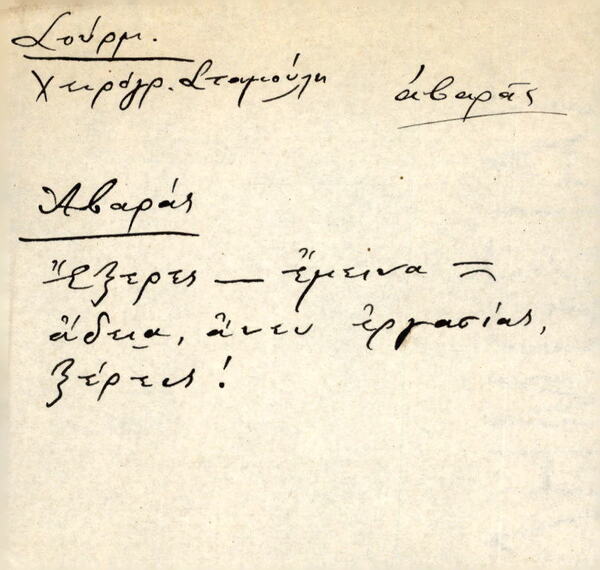 Σούρμ.
Χειρόγρ. Σταμούλη
ἀβαρᾶς
Ἀβαράς
Ἔξερες — ἔμεινα =
ἄδεια, ἄνευ ἐργασίας,
ξέρεις!